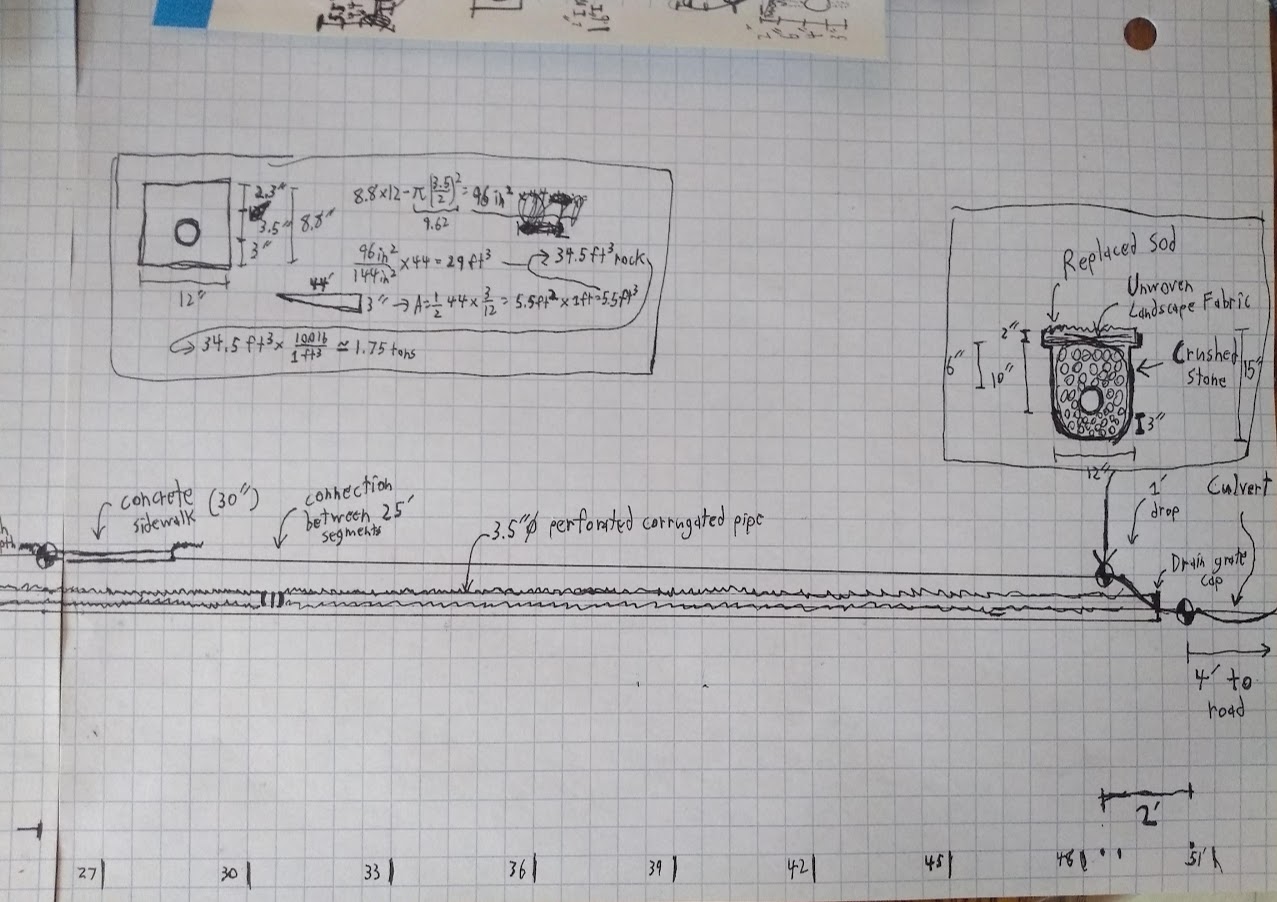 2.3"
3.5"
3"
8.8"
12"
8.8×12-π(3.5/2)²=96in²
9.62
96in²/144in² ×44=29ft³ → 34.5ft³ rock
44'
3" → A=1/2 44×3/12=5.5ft²×1ft=5.5ft³
→ 34.5ft³× 100lb/1ft³ ≃1.75tons
Replaced Sod
Unwoven
Landscape Fabric
Crushed
Stone
2"
6"
10"
15"
3"
12"
concrete
sidewalk (30")
connection
between 25'
segments
3.5"φ perforated corrugated pipe
1'
drop
Culvert
Drain grate
cap
4' to
road
2'
27
30
33
36
39
42
45
48
51'